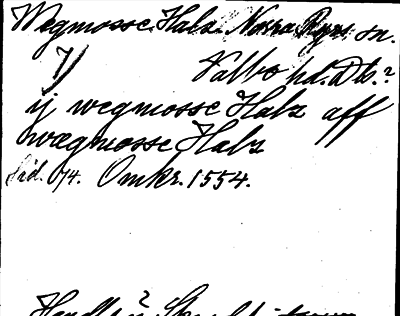 Wegmosse Halz. Norra Ryrs sn.
7) Valbo hd. Db.?
ij wegmosse Halz aff
wægmosse Halz
Sid. 64. Omkr. 1554.